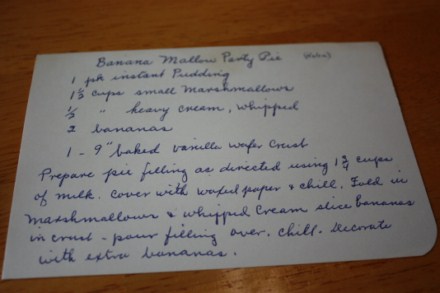 Banana Mallow Party Pie
1 pk instant Pudding
1 1/2 cups small Marshmallows
1/2 " heavy cream, whipped
2 bananas
1 - 9" baked vanilla wafer crust
Prepare pie filling as directed using 1 3/4 cups
of milk. Cover with waxed paper & chill. Fold in
Marshmallows & whipped cream slice bananas
in crust - pour filling over. Chill. Decorate
with extra bananas.